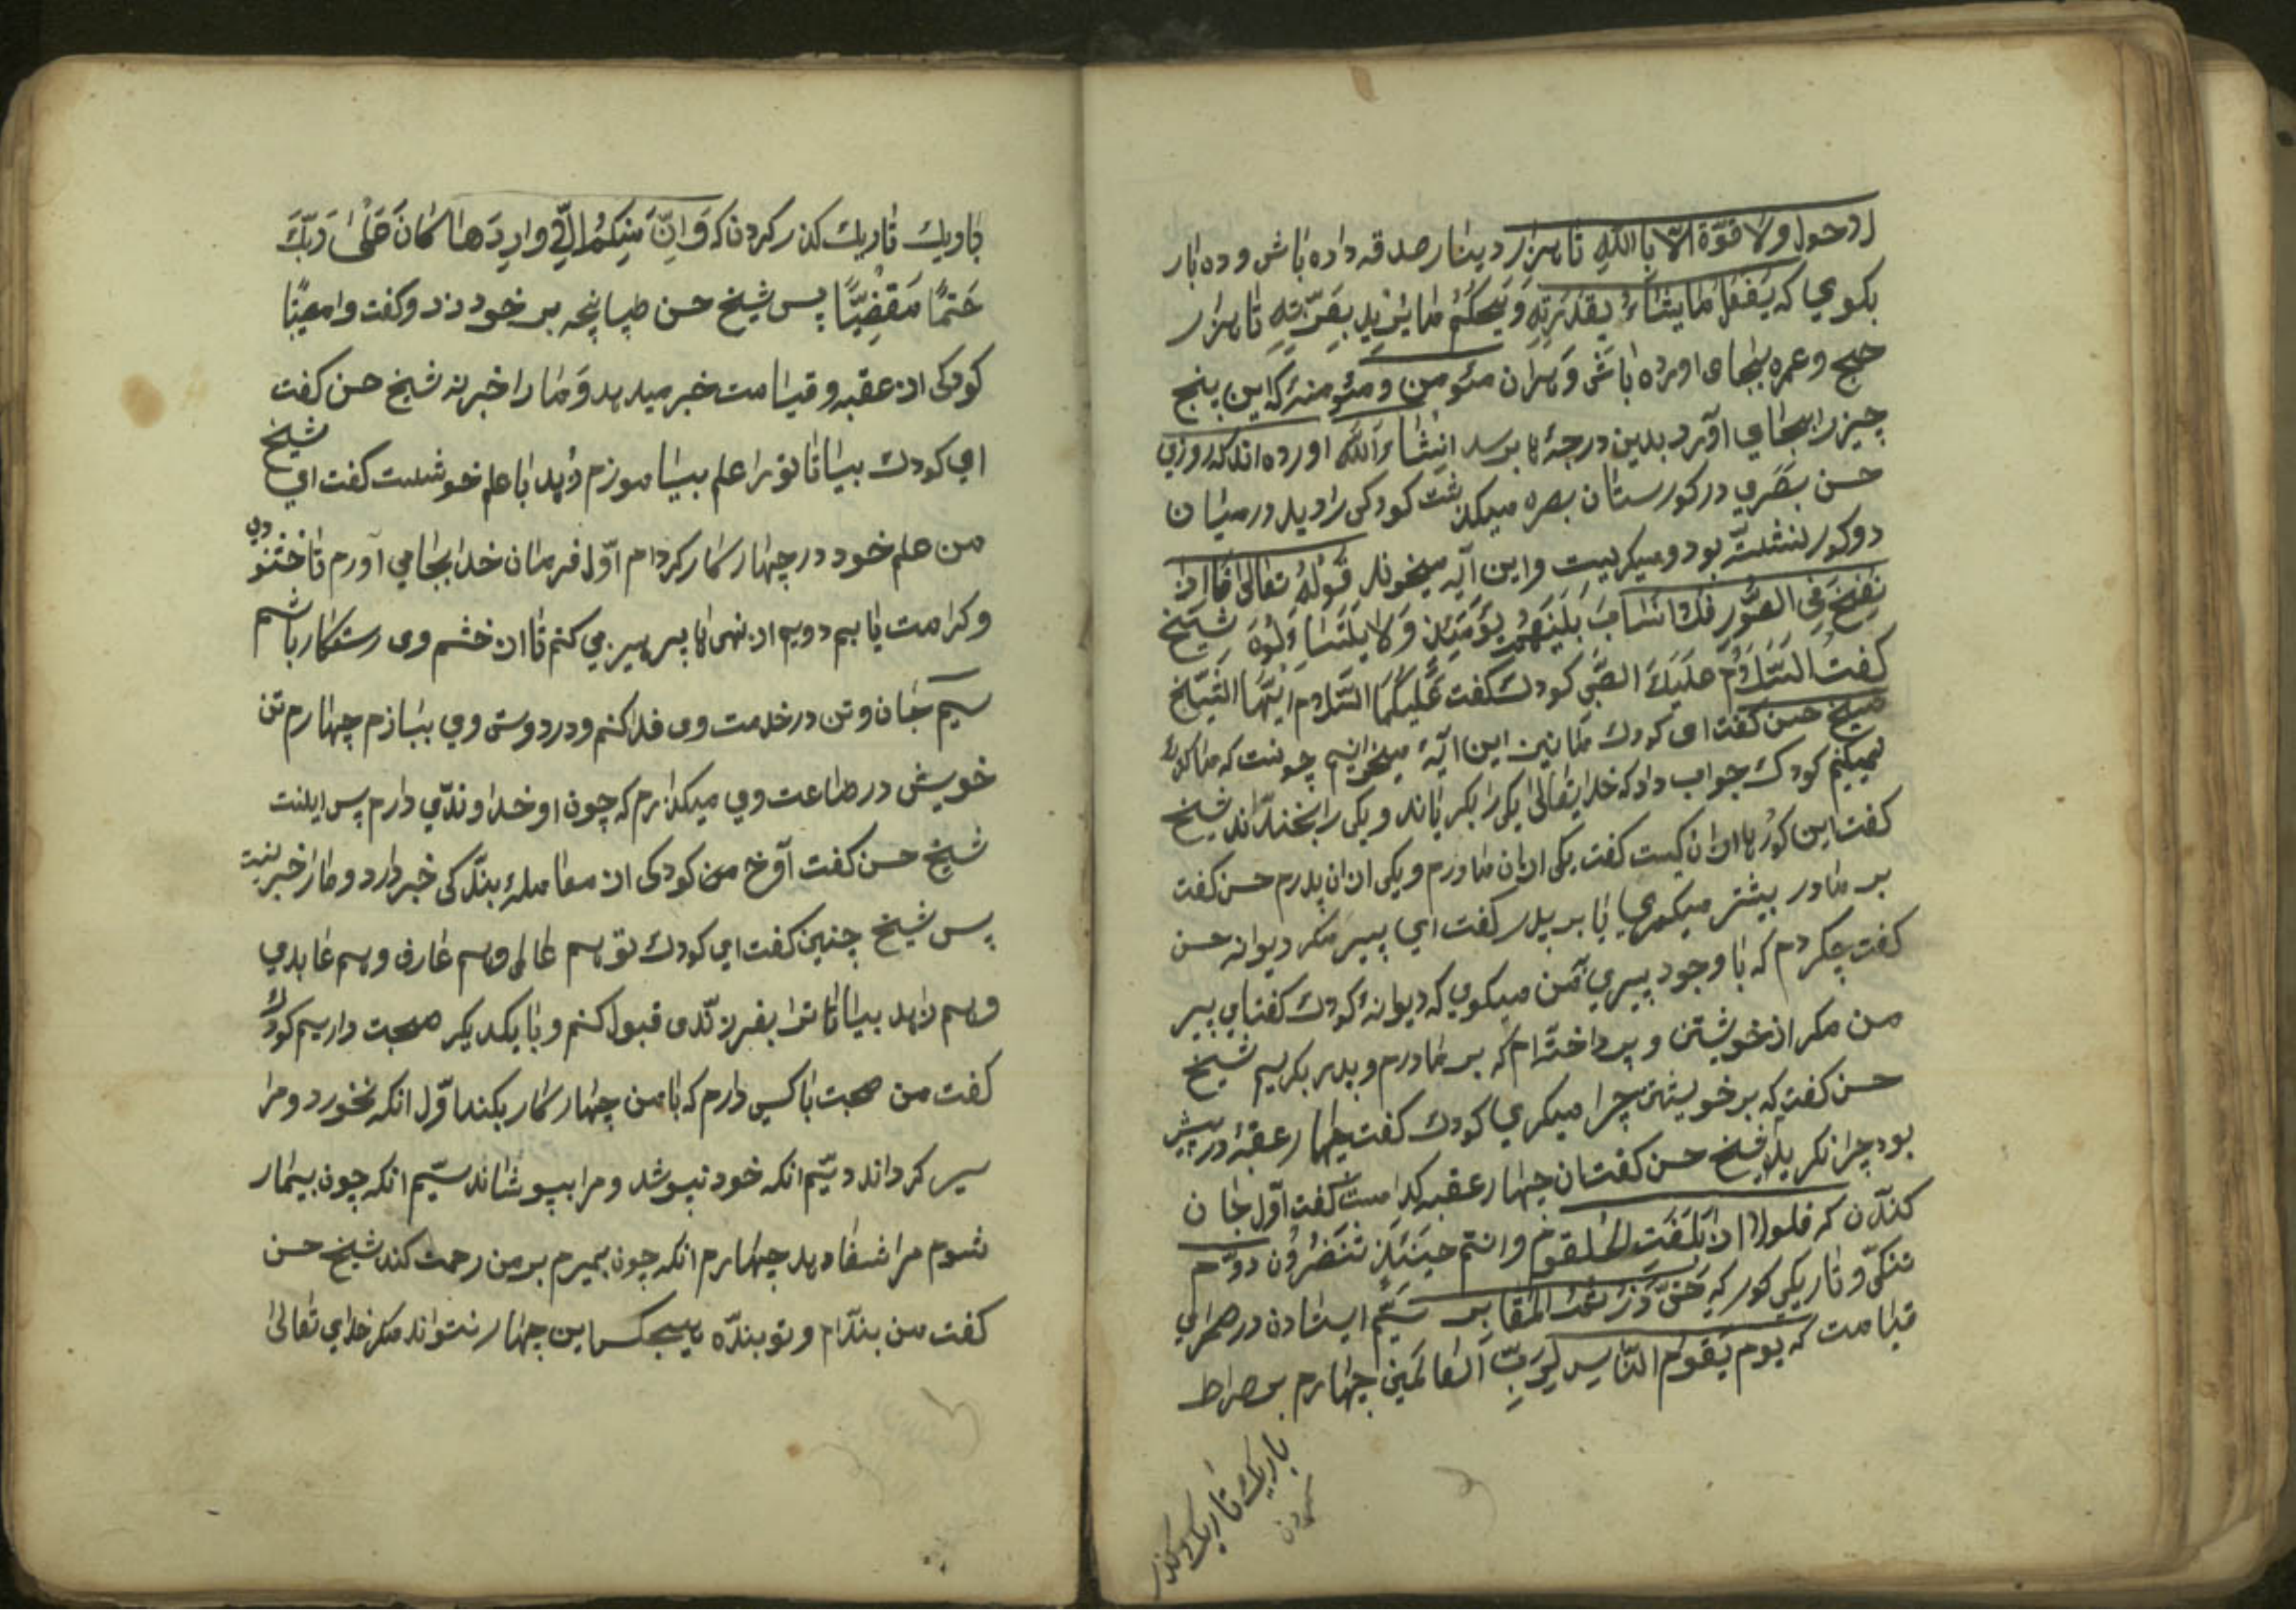 لاحول ولا قوّة الّا باالله تا هزار دینار صدقه داده باش و ده بار
بکوي که یَفعَلُ مایشاءُ بِقُدرَتِهِ وَ یَحکُمُ ما یُرید بِعِزّتِهِ تا هزار
حج و عمره بجای اورده باش و هران مئومن و مئومنهٔ که این پنج
چیز را بجاي آورد بدین درجهٔ ها برسد انشاء الله اورده اند که روزي
حسن بصري در کورستان بصره میکذشت کودکی را دید در میان
دو کور نشسته بود و میکریست و این آیه میخوند قوله تعالی فاذا
نفخ في الصّور فلا انساب بینهم یومئذ ولا یتساءلون شیخ
کفت السّلام علیک الصّبی کودک کفت علیکما السّلام ایّها الشّیخ
شیخ حسن کفت ای کودک مانیز این آیهٔ میخوانیم چونست که ما کریهٔ
نمیکنیم کودک جواب داد که خدایتعالی یکی را بکریاند و یکی را بخنداند شیخ
کفت این کورها از ان کیست کفت یکی از ان مادرم و یکی از ان پدرم حسن کفت
بر مادر بیشتر میکریي یا بر پدر کفت اي پیر مکر دیوانه حسن
کفت چکردم که با وجود پیري بمن میکوي که دیوانهٔ کودک کفت اي پیر
من مکر از خویشتن و پرداخته‌ام که بر مادرم و پدر بکریم شیخ
حسن کفت که بر خویشتن چرا میکري کودک کفت چهار عقبهٔ در پیش
بود چرا نکریم شیخ حسن کفت ان چهار عقبه کدامست کفت اوّل جان
کندن که فلولا اذا بلغت الحلقوم وانتم حینئذ تنضرون دوّم
تنکی و تاریکی کور که حتّی زرتم المقابر سیّم ایستادن در صحرای
قیامت که یوم یقوم النّاس لربّ العالمین چهارم بر صراط
باریک تاریک و کذر
کردن
باریک تاریک کذر کردن که وَ اِنّ مِنکُم الّا واردها کانَ عَلی رَبّکَ
حَتمًا مَقضِیًّا پس شیخ حسن طپانچه بر خود زد و کفت وامصیبتا
کودکی از عقبه و قیامت خبر میدهد و مارا خبر نه شیخ حسن کفت
اي کودک بیا تا تورا علم بیاموزم زهد با علم خوشست کفت اي شیخ
من علم خود در چهار کار کردام اوّل فرمان خدا بجا مي آورم تا خشنودي
و کرامت یابم دویم از نهی ها پرهیز مي کنم تا از خشم وی رستکار باشم
سیم جان و تن در خدمت وی فدا کنم و در دوستی وي ببازم چهارم تن
خویش در طاعت وي میکذارم که چون او خداوندي دارم پس اینست
شیخ حسن کفت آوخ من کودکی از معاملهٔ بندکی خبر دارد و مارا خبر نیست
پس شیخ چنین کفت اي کودک تو هم عالمی و هم عارف و هم عابدي
و هم زاهد بیا تا ترا بفرزندی قبول کنم و با یکدیکر صحبت داریم کودک
کفت من صحبت با کسی دارم که با من چهار کار بکند اوّل انکه نخورد و مرا
سیر کرداند دیّم انکه خود نپوشد و مرا بپوشاند سیّم انکه چون بیمار
شوم مرا شفا دهد چهارم انکه چون بمیرم بر من رحمت کند شیخ حسن
کفت من بنده‌ام و تو بنده هیچکس این چهار نتواند مکر خداي تعالی